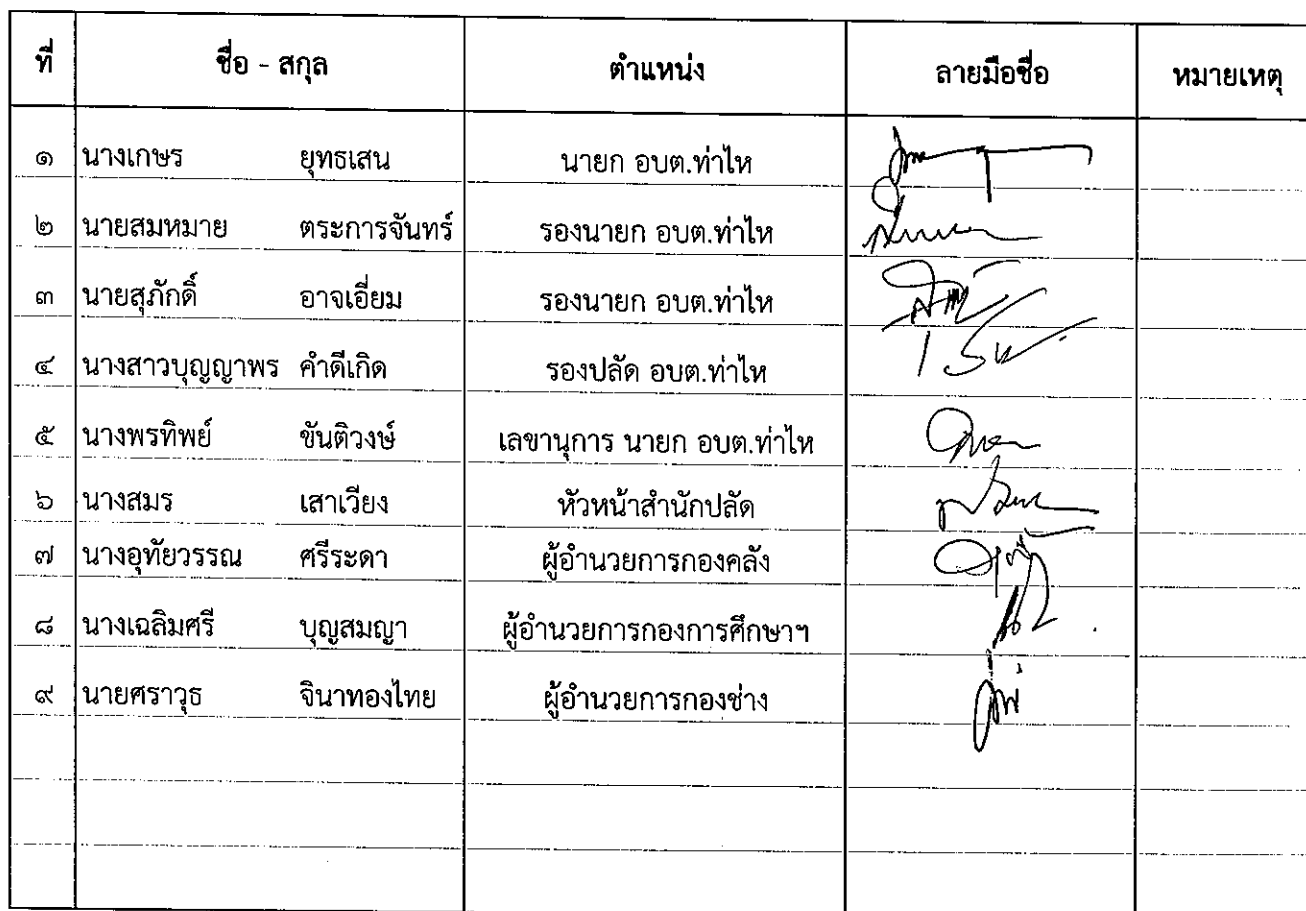 ที่ ชื่อ - สกุล ตำแหน่ง ลายมือชื่อ หมายเหตุ
๑ นางเกษร ยุทธเสน นายก อบต.ท่าไห
๒ นายสมหมาย ตระการจันทร์ รองนายก อบต.ท่าไห
๓ นายสุภักดิ์ อาจเอี่ยม รองนายก อบต.ท่าไห
๔ นางสาวบุญญาพร คำดีเกิด รองปลัด อบต.ท่าไห
๕ นางพรทิพย์ ขันติวงษ์ เลขานุการ นายก อบต.ท่าไห
๖ นางสมร เสาเวียง หัวหน้าสำนักปลัด
๗ นางอุทัยวรรณ ศรีระดา ผู้อำนวยการกองคลัง
๘ นางเฉลิมศรี บุญสมญา ผู้อำนวยการกองการศึกษาฯ
๙ นายศราวุธ จินาทองไทย ผู้อำนวยการกองช่าง